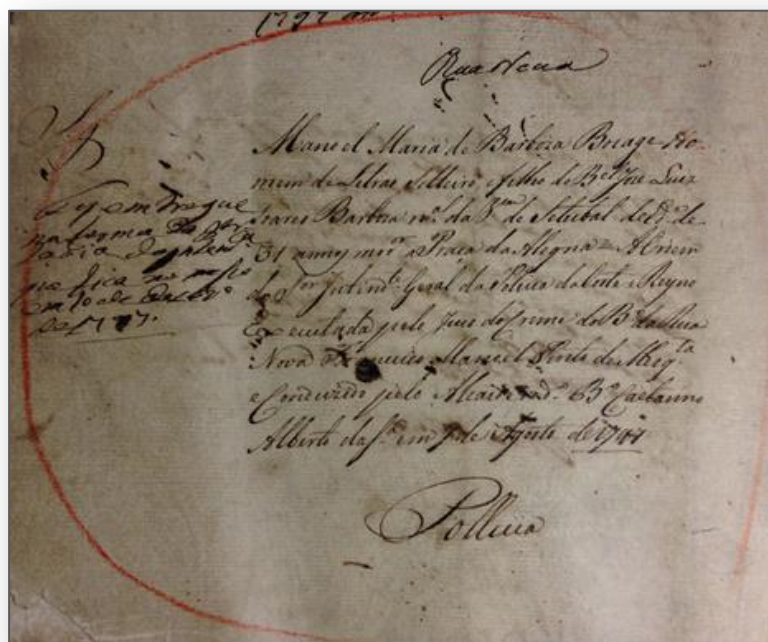 1797
Rua Nova
Manoel Maria de Barboza Bocage Ho-
mem de Letras Solteiro, e filho de Bel Joze Luiz
Soares Barboza nal da Va de Setubal de Ide de
31 annos mor a Praça da Alegria = A Ordem
do Sor Intendte Geral da Policia da Corte e Reyno
Executada pelo Juis do Crime do Bo da Rua
Nova Francisco Manoel Pinto de Mesqta
e Conduzido pelo Alcaide do do Bo Caetanno
Alberto da Sa em 7 de Agosto de 1797
Policia
Foy entregue
na forma da
que fica no
de 1797.